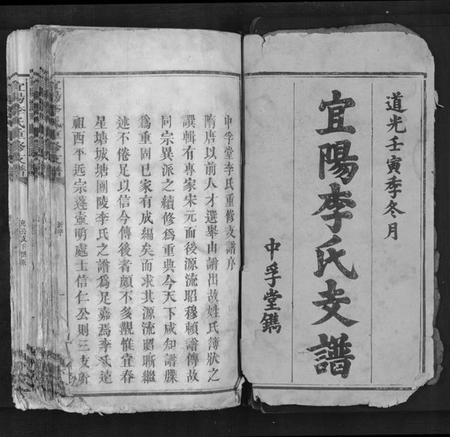 道光壬寅季冬月
宜陽李氏支譜
中孚堂鐫
中孚堂李氏重修支譜序
隋唐以前人才選舉由譜出故姓氏簿狀之
譔輯有專家宋元而後源流昭穆賴譜傳故
同宗異派之續修為重典今天下咸知譜牒
為重固已家有成編矣而求其源流昭晰繼
述不倦足以信今傳後者顧不多覯惟宜春
星塘城塘團陵李氏之譜為足嘉焉李氏遠
祖西平遠宗蓬壷明處士信仁公則三支所
宜陽李氏重修支譜